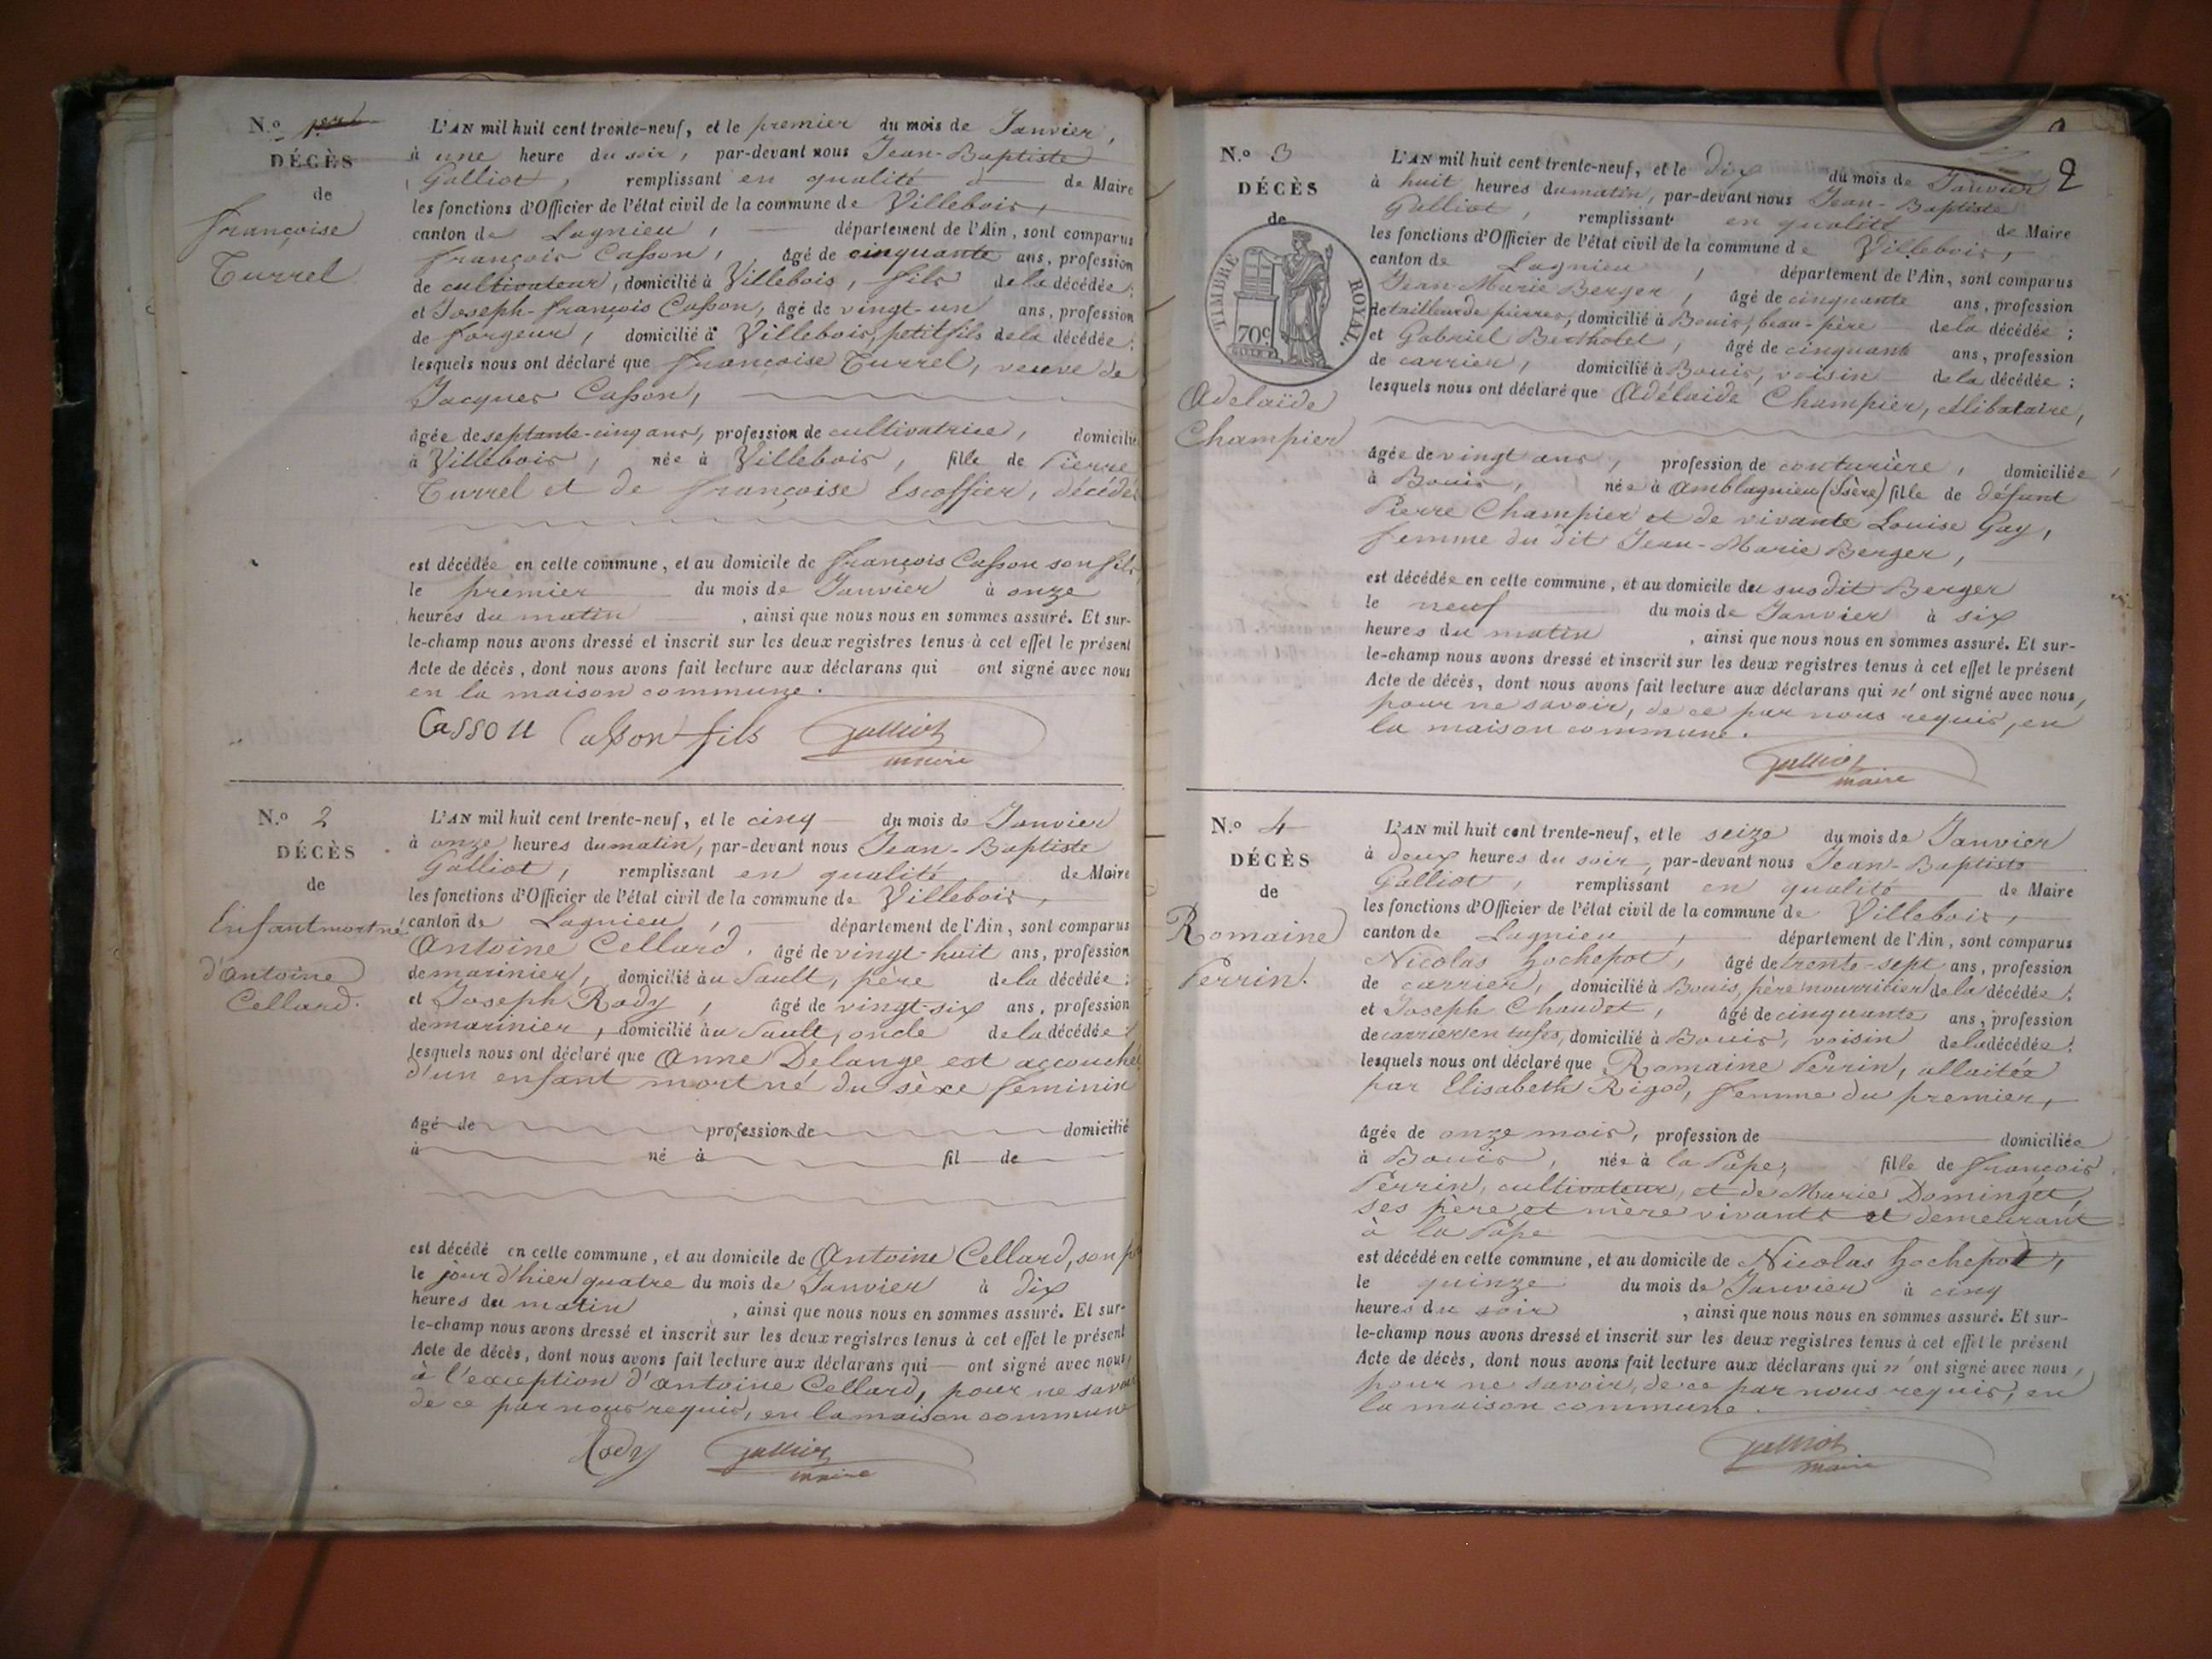 N.o 1er
DÉCÈS
de
Françoise
Turrel
L'AN mil huit cent trente-neuf, et le premier du mois de Janvier,
à une heure du soir, par-devant nous Jean-Baptiste
Galliot, remplissant en qualité de Maire
les fonctions d'Officier de l'état civil de la commune de Villebois,
canton de Lagnieu, département de l'Ain, sont comparus
François Casson, âgé de cinquante ans, profession
de cultivateur, domicilié à Villebois, fils de la décédée;
et Joseph-François Casson, âgé de vingt-un ans, profession
de forgeur, domicilié à Villebois, petit fils de la décédée;
lesquels nous ont déclaré que Françoise Turrel, veuve de
Jacques Casson,
âgée de septante-cinq ans, profession de cultivatrice, domicilié
à Villebois, née à Villebois, fille de Pierre
Turrel et de Françoise Escoffier, décédés
est décédée en cette commune, et au domicile de François Casson son fils
le premier du mois de Janvier à onze
heures du matin, ainsi que nous nous en sommes assuré. Et sur-
le-champ nous avons dressé et inscrit sur les deux registres tenus à cet effet le présent
Acte de décès, dont nous avons fait lecture aux déclarans qui ont signé avec nous
en la maison commune.
Casson Casson fils Galliot
maire
N.o 2
DÉCÈS
de
Enfant mort né
d'Antoine
Cellard.
L'AN mil huit cent trente-neuf, et le cinq du mois de Janvier
à onze heures du matin, par-devant nous Jean-Baptiste
Galliot, remplissant en qualité de Maire
les fonctions d'Officier de l'état civil de la commune de Villebois,
canton de Lagnieu, département de l'Ain, sont comparus
Antoine Cellard, âgé de vingt-huit ans, profession
de marinier, domicilié au Sault, père de la décédée;
et Joseph Rody, âgé de vingt-six ans, profession
de marinier, domicilié au Sault, oncle de la décédée;
lesquels nous ont déclaré que Anne Delange est accouchée
d'un enfant mort né du sèxe féminin
âgé de profession de domicilié
à né à fil de
est décédé en cette commune, et au domicile de Antoine Cellard, son
le jour d'hier quatre du mois de Janvier à dix
heures du matin, ainsi que nous nous en sommes assuré. Et sur-
le-champ nous avons dressé et inscrit sur les deux registres tenus à cet effet le présent
Acte de décès, dont nous avons fait lecture aux déclarans qui ont signé avec nous,
à l'exception d'Antoine Cellard, pour ne savoir
de ce par nous requis, en la maison commune
Rody Galliot
maire
2
N.o 3
DÉCÈS
de
TIMBRE ROYAL.
70c
Adelaïde
Champier
L'AN mil huit cent trente-neuf, et le dix du mois de Janvier
à huit heures du matin, par-devant nous Jean-Baptiste
Galliot, remplissant en qualité de Maire
les fonctions d'Officier de l'état civil de la commune de Villebois,
canton de Lagnieu, département de l'Ain, sont comparus
Jean-Marie Berger, âgé de cinquante ans, profession
de tailleur de pierres, domicilié à Bouis, beau-père de la décédée;
et Gabriel Bertholet, âgé de cinquante ans, profession
de carrier, domicilié à Bouis, voisin de la décédée;
lesquels nous ont déclaré que Adélaïde Champier, célibataire,
âgée de vingt ans, profession de couturière, domiciliée
à Bouis, née à Amblagnieu (Isère) fille de défunt
Pierre Champier et de vivante Louise Gay,
femme du dit Jean-Marie Berger,
est décédée en cette commune, et au domicile du susdit Berger
le neuf du mois de Janvier à six
heures du matin, ainsi que nous nous en sommes assuré. Et sur-
le-champ nous avons dressé et inscrit sur les deux registres tenus à cet effet le présent
Acte de décès, dont nous avons fait lecture aux déclarans qui n'ont signé avec nous,
pour ne savoir, de ce par nous requis, en
la maison commune.
Galliot
maire
N.o 4
DÉCÈS
de
Romaine
Perrin.
L'AN mil huit cent trente-neuf, et le seize du mois de Janvier
à deux heures du soir, par-devant nous Jean-Baptiste
Galliot, remplissant en qualité de Maire
les fonctions d'Officier de l'état civil de la commune de Villebois,
canton de Lagnieu, département de l'Ain, sont comparus
Nicolas hochepot, âgé de trente-sept ans, profession
de carrier, domicilié à Bouis, père nourricier de la décédée;
et Joseph Chaudet, âgé de cinquante ans, profession
de carrier en tufs, domicilié à Bouis, voisin de la décédée;
lesquels nous ont déclaré que Romaine Perrin, allaitée
par Elisabeth Rigod, femme du premier,
âgée de onze mois, profession de domiciliée
à Bouis, née à la Pape, fille de François
Perrin, cultivateur, et de Marie Dominget,
ses père et mère vivants et demeurant
à la Pape
est décédé en cette commune, et au domicile de Nicolas hochepot,
le quinze du mois de Janvier à cinq
heures du soir, ainsi que nous nous en sommes assuré. Et sur-
le-champ nous avons dressé et inscrit sur les deux registres tenus à cet effet le présent
Acte de décès, dont nous avons fait lecture aux déclarans qui n'ont signé avec nous,
pour ne savoir, de ce par nous requis, en
la maison commune.
Galliot
maire